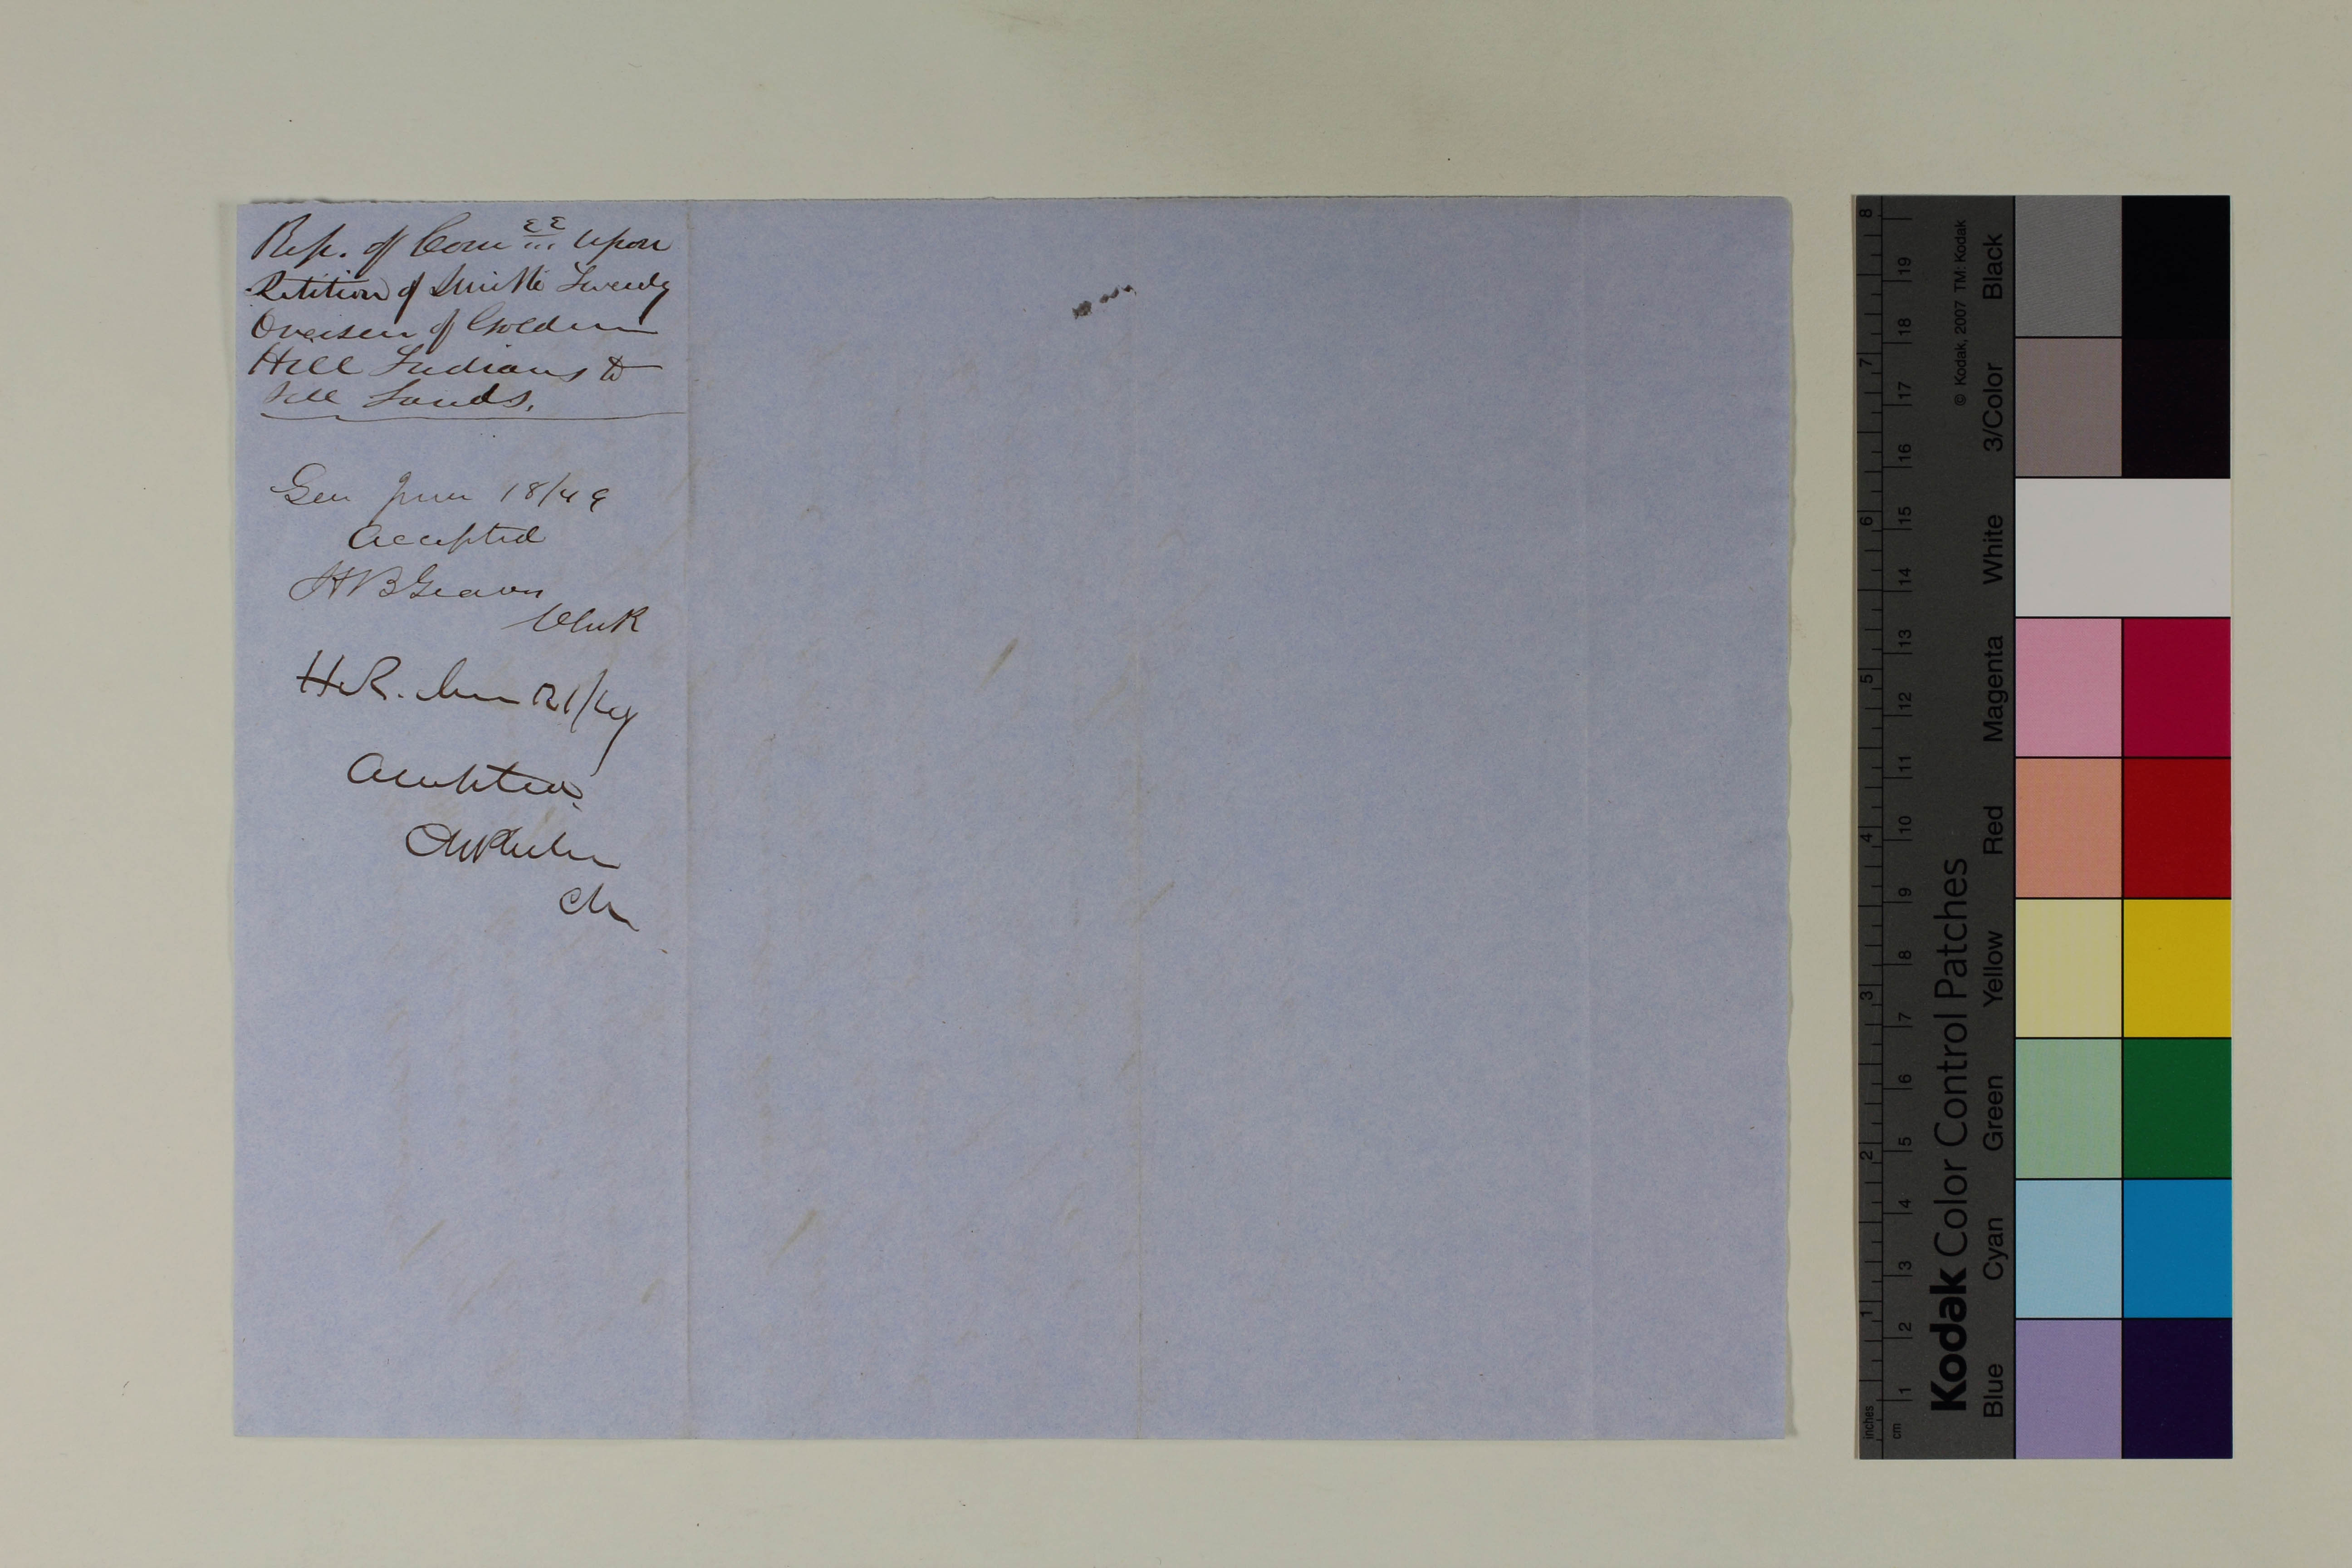 Rep. of Com ee upon
Petition of Smith Tweedy
Overseer of Golden
Hill Indians to
sell Lands.
Sen June 18/49
Accepted
H B Graves
Clerk
H.R. June 21/49
Accepted.
Clk
Kodak Color Control Patches
© Kodak, 2007 TM: Kodak
Blue Cyan Green Yellow Red Magenta White 3/Color Black
inches 1 2 3 4 5 6 7 8
cm 1 2 3 4 5 6 7 8 9 10 11 12 13 14 15 16 17 18 19